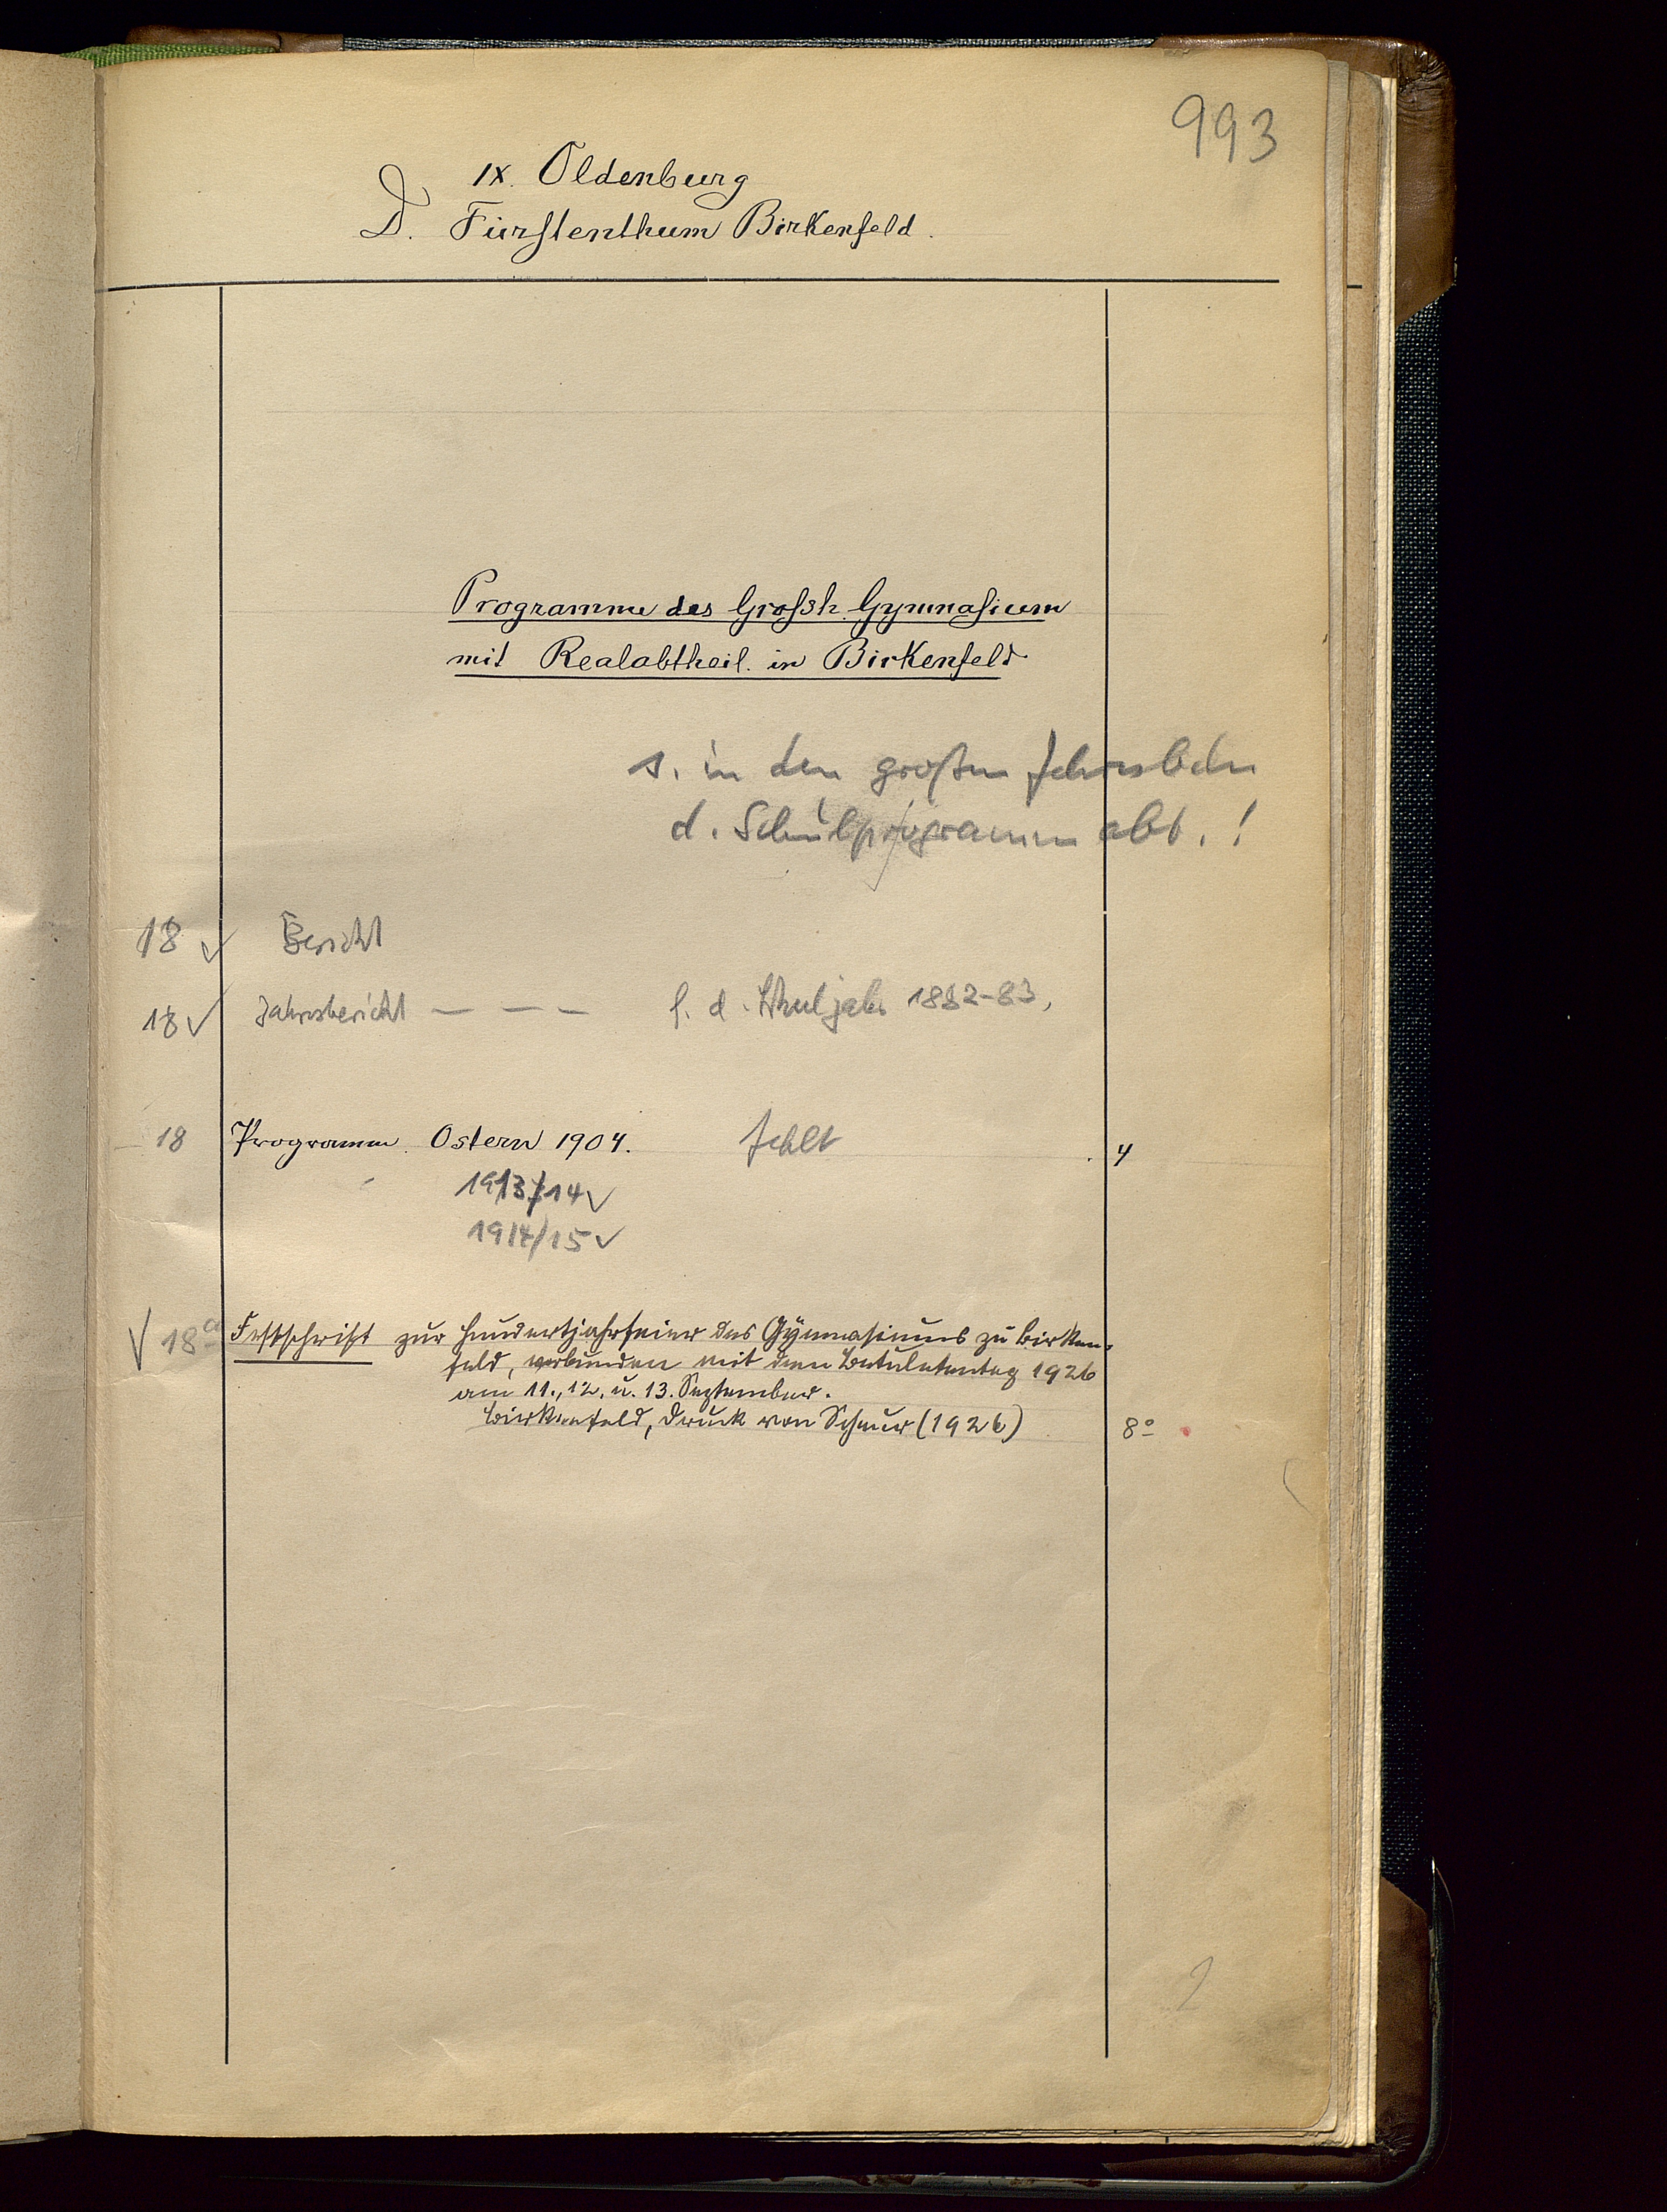 993
IX. Oldenburg
D. Fürstenthum Birkenfeld.
Programme des Grossh. Gymnasium
mit Realabtheil. in Birkenfeld
s. in den großen
d. Schulprogramm abt. !
18 ✓ Bericht
18 ✓ Jahresbericht — — — f. d. Schuljahr 1882-83,
18 Programm. Ostern 1904. fehlt 4
1913/14 ✓
1914/15 ✓
√ 18a Festschrift zur Hundertjahrfeier des Gymnasiums zu Birken-
feld, verbunden mit dem 1926
am 11., 12. u. 13. September.
Birkenfeld, Druck von (1926) 8o